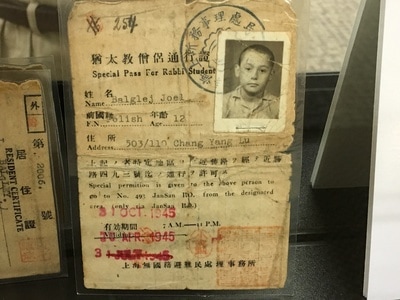 254
猶太教僧侶通行證
Special Pass For Rabbi Student
姓名
Name Balglej Joel
前國籍 年齡
F.N. Polish Age 12
住所
Address 503/110 Chang Yang Lu
Special permition is given to the above person to
go to No. 493 JanSan Rd. from the designated
area (only via JanSan Rd.)
31 OCT. 1945
有効期間 7 A.M.—11 P.M.
30 APR. 1945
31 JULY 1945
上海無國籍避難民處理事務所
外
第 2006. 號
居住證
RESIDENT CERTIFICATE